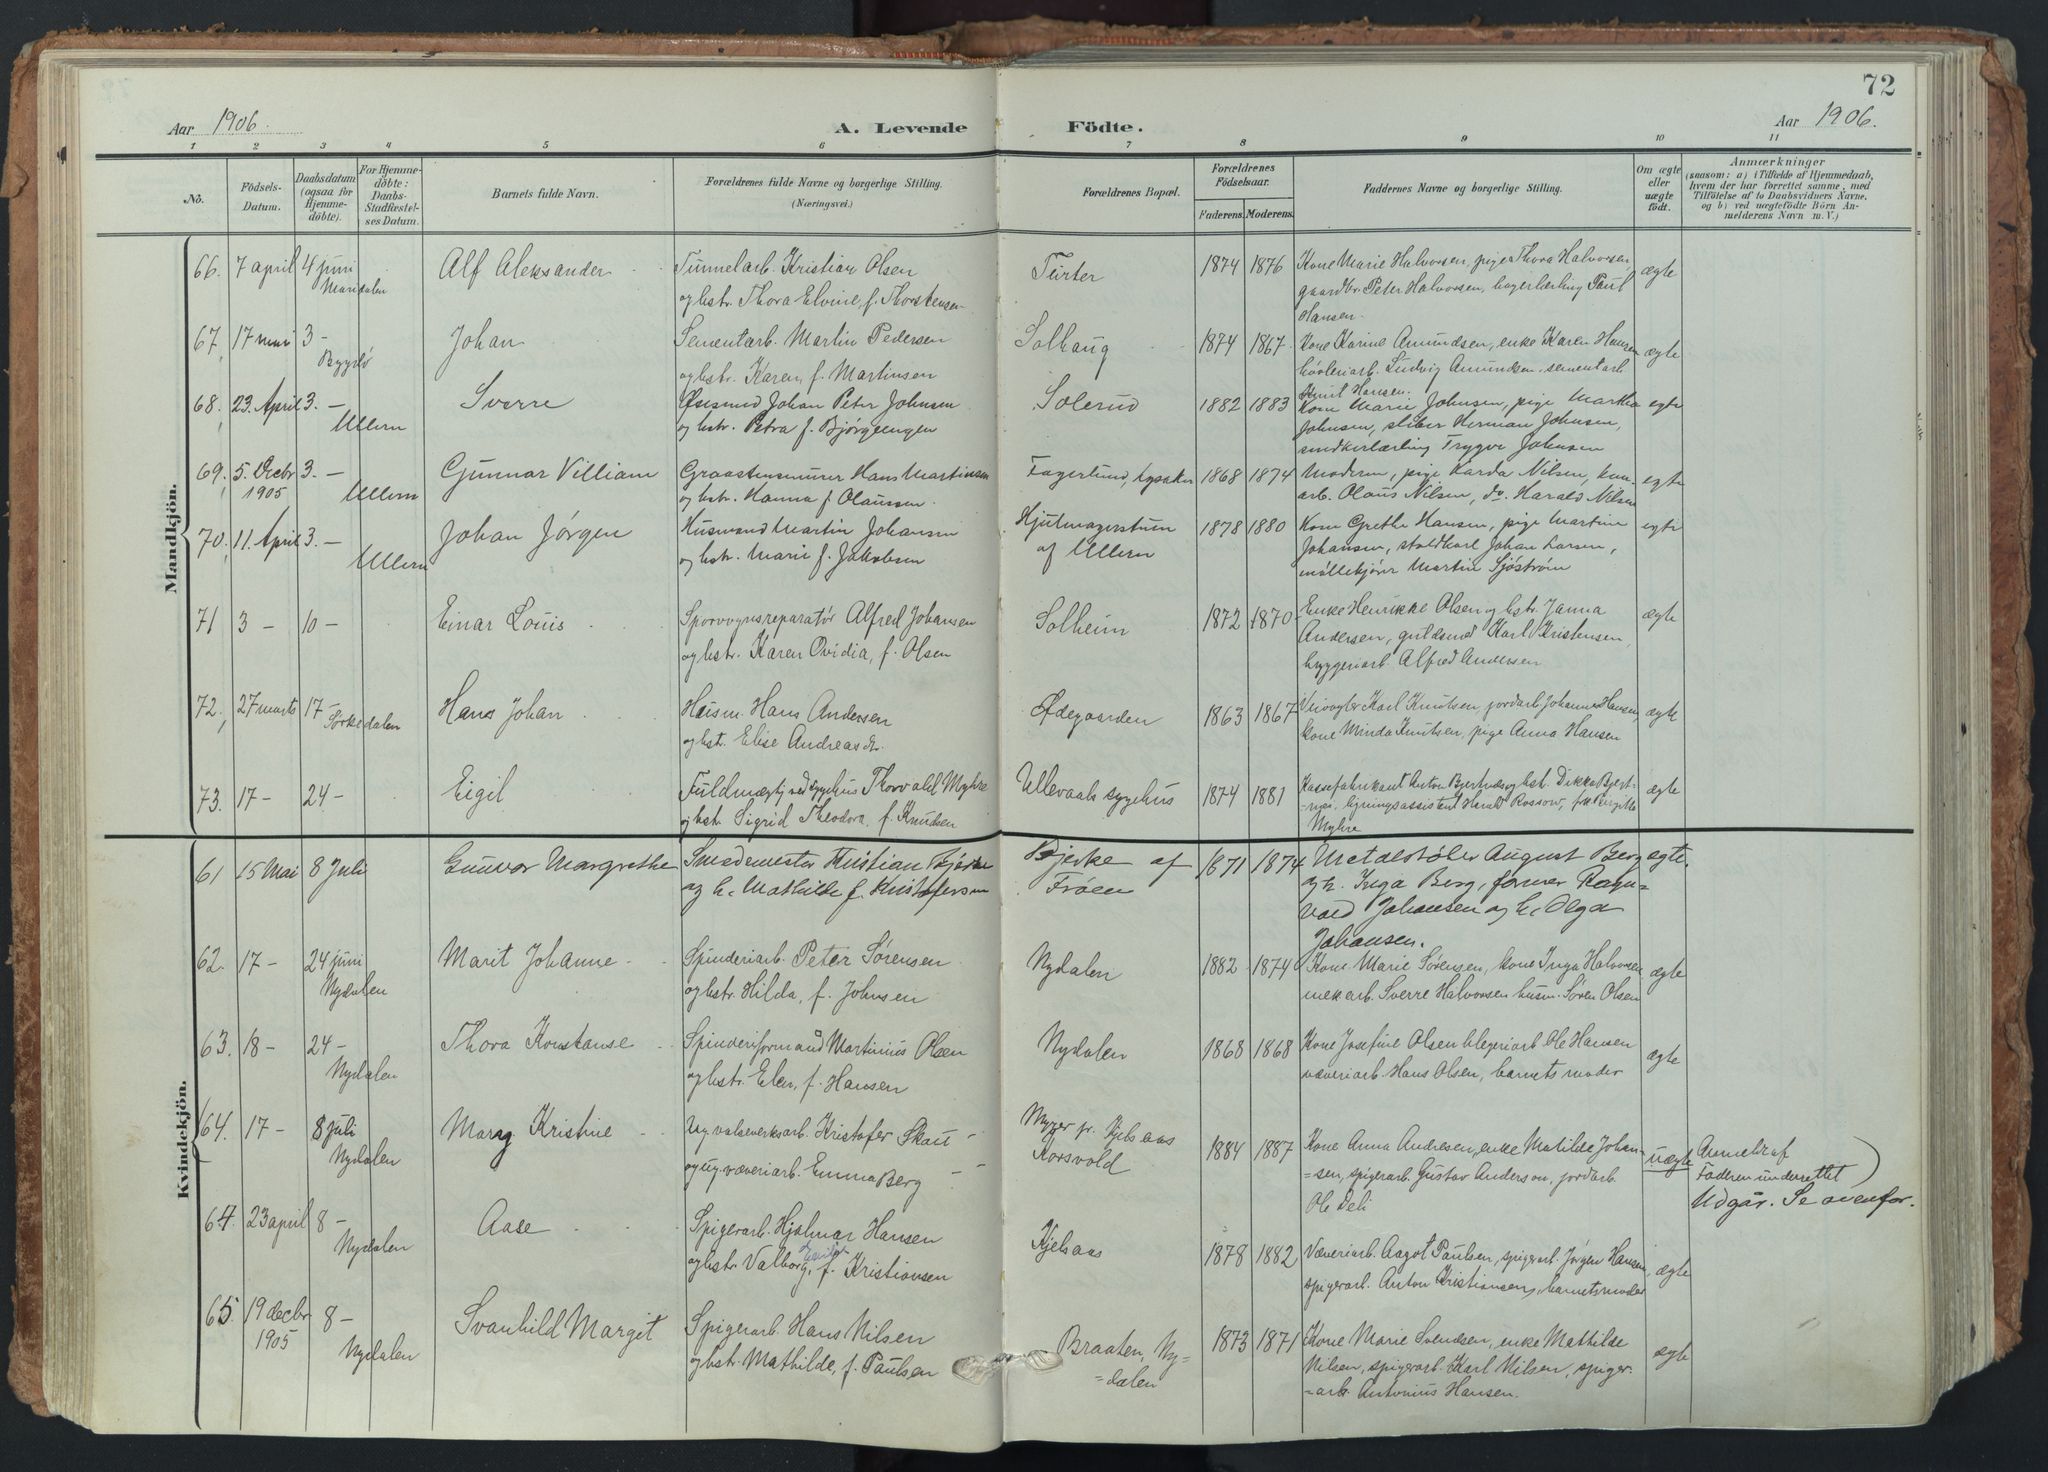 72
Aar 1906.
A. Levende Födte.
Aar 1906.
1 2 3 4 5 6 7 8 9 10 11
No.
Födsels-
Datum.
Daabsdatum
(ogsaa for
Hjemme-
döbte).
For Hjemme-
döbte:
Daabs-
Stadfæstel-
ses Datum.
Barnets fulde Navn.
Forældrenes fulde Navne og borgerlige Stilling.
(Næringsvei.)
Forældrenes Bopæl.
Forældrenes
Födselsaar.
Faderens. Moderens.
Faddernes Navne og borgerlige Stilling.
Om ægte
eller
uægte
födt.
Anmærkninger
(saasom: a) i Tilfælde af Hjemmedaab,
hvem der har forrettet samme, med
Tilföielse af to Daabsvidners Navne,
og b) ved uægtefödte Börn An-
melderens Navn m. V.)
Mandkjön.
66. 7 april 4 juni Alf Aleksander Tunnelarb. Kristian Olsen Turter 1874 1876 Kone Marie Halvorsen, pige Thora Halvorsen, ægte
Maridalen og hstr. Thora Elvine, f. Thorstensen gaardbr. Peter Halvorsen, bagerlærling Paul
Hansen.
67. 17 mai 3 – Johan Sementarb. Martin Pedersen Solhaug 1874 1867 Kone Karine Amundsen, enke Karen Hansen ægte
Bygdø og hstr. Karen, f. Martinsen høvleriarb. Ludvig Amundsen, sementarb.
Hansen.
68. 23. April 3. – Sverre Johan Peter Johnsen Solerud 1882 1883 Kone Marie Johnsen, pige Martha egte
Ullern og hstr. Petra f. Bjørgeengen Johnsen, sliber Herman Johnsen,
snedkerlærling Trygve Johnsen
69. 5. Decbr 3. – Gunnar Villiam Graastensmurer Hans Martinsen Fagerlund, Lysaker 1868 1874 Moderen, pige Karda Nilsen, egte
1905 Ullern og hstr. Hanna f. Olaussen. arb. Olaus Nilsen, do. Harald Nilsen
70. 11. April 3. – Johan Jörgen Husmand Martin Johansen Hjulmagerstuen 1878 1880 Kone Grethe Hansen, pige Martine egte
Ullern og hstr. Marie f. Jakobsen af Ullern Johansen, staldkarl Johan Larsen,
møllekjører Martin Sjöström
71 3 – 10 – Einar Louis Sporvognsreparatør Alfred Johansen Solheim 1872 1870 Enke Henrikke Olsen og hstr. Janna ægte
og hstr. Karen Ovidia, f. Olsen Andersen, guldsmed Karl Kristensen,
bryggeriarb. Alfred Andersen
72. 27 marts 17 – Hans Johan Husm. Hans Andersen Ødegaarden 1863 1867 Veivogter Karl Knutsen, jordarb. Johannes Hansen, ægte
Sørkedalen og hst. Elise Andreasdt. kone Minda Knutsen, pige Anna Hansen
73. 17 – 24 – Eigil Fuldmægtig ved sygehus Thorvald Myhre Ullevaals sygehus 1874 1881 Kassefabrikant Anton Bjertnæs og hst. Dikka Bjert- ægte
og hst. Sigrid Theodora, f. Knudsen -næs. ligningsassistent Harald Rossow, frk Birgitte
Myhre
Kvindekjön.
61 15 Mai 8 Juli Gunvor Margrethe Smedemester Kristian Bjerke Bjerke af 1871 1874 Metalstøber August Berg egte.
og h. Mathilde f. Kristofersen Frøen og h. Inga Berg, former Ragn-
vald Johansen og h. Olga
Johansen.
62. 17 – 24 juni Marit Johanne Spinderiarb. Peter Sørensen Nydalen 1882 1874 Kone Marie Sørensen, kone Inga Halvorsen ægte
Nydalen og hstr. Hilda, f. Johnsen mek arb. Sverre Halvorsen husm. Søren Olsen
63. 18 – 24 – Thora Konstanse Spinderiformand Martinius Olsen Nydalen 1868 1868 Kone Josefine Olsen blegeriarb Ole Hansen ægte
Nydalen og hstr. Elen, f. Hansen væveriarb. Hans Olsen, barnets moder
64. 17 – 8 juli Mary Kristine Ug. valseverksarb. Kristofer Skau Myrer pr. Kjelsaas 1884 1887 Kone Anna Andresen, enke Matilde Johan- uægte Anmeldt af
Nydalen og ug. væveriarb. Emma Berg Korsvold =sen, spigerarb. Gustav Anderson, jordarb. Faderen underrettet
Ole Deli Udgår. Se ovenfor.
64. 23 april 8 – Aase Spigerarb. Hjalmar Hansen Kjelsaas 1878 1882 Væveriarb. Aagot Paulsen, spigerarb. Jørgen Hansen, ægte
Nydalen og hstr. Valborg, f. Kristiansen spigerarb. Anton Kristiansen, barnets moder
65. 19 decbr 8 – Svanhild Margit Spigerarb. Hans Nilsen Braaten, Ny= 1873 1871 Kone Marie Svendsen, enke Mathilde ægte
1905 Nydalen og hstr. Mathilde, f. Paulsen =dalen Nilsen, spigerarb. Karl Nilsen, spiger=
=arb. Antonius Hansen.